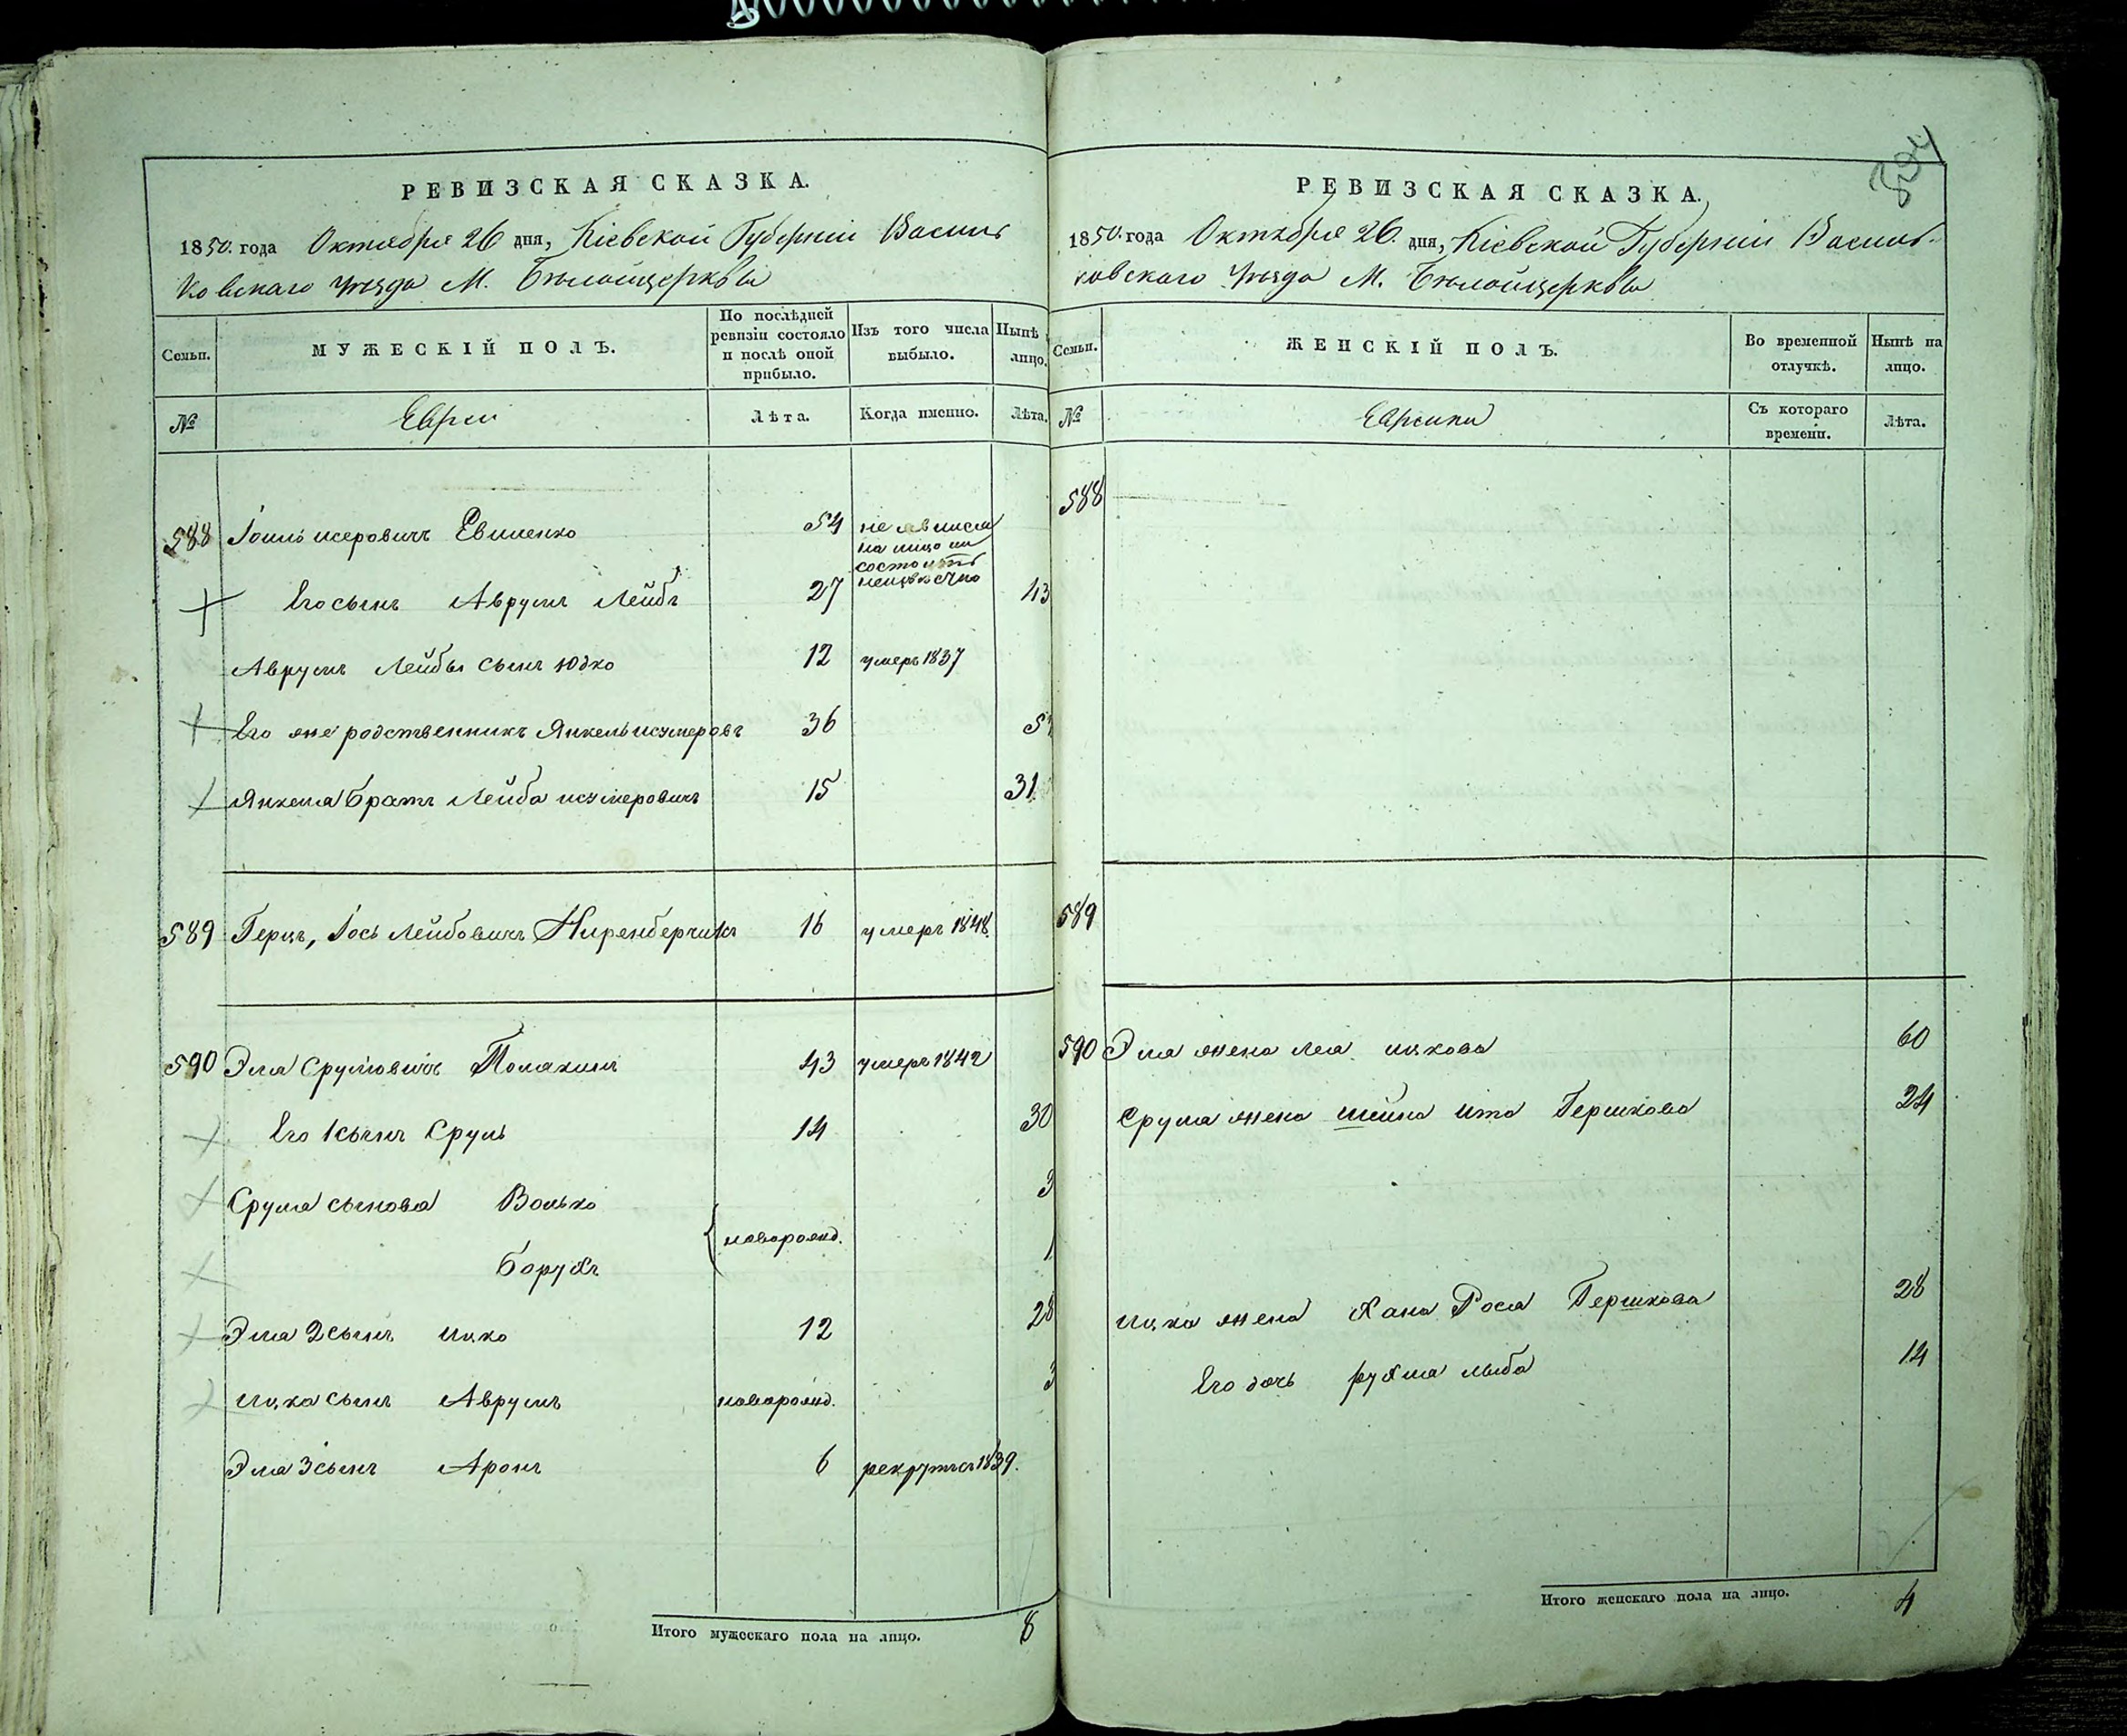 РЕВИЗСКАЯ СКАЗКА.
1850. года Октября 26 дня, Кіевской Губерніи Василь
ковскаго уѣзда М. Бѣлойцеркви
Семьи.
МУЖЕСКІЙ ПОЛЪ.
По послѣдней ревизіи состояло и послѣ оной прибыло.
Изъ того числа выбыло.
Нынѣ лицо.
№
Евреи
Лѣта.
Когда именно.
Лѣта.
588 Іоиль Евменко 54 не
на лицо
состоитъ
Его сынъ Аврумъ Лейбъ 27 43
Аврумъ Лейбы сынъ Юдко 12 умеръ 1837
Его же родственникъ Янкель 36
Янкеля братъ Лейба 15 31
589 Герцъ, Іось Лейбовичъ Ниренберчикъ 16 умеръ 1848.
590 Эля Срулювичъ Полякинъ 43 умеръ 1842
Его 1 сынъ Сруль 14 30
Сруля сыновья Волько 3
новорожд.
Борухъ 1
Эля 2 сынъ Ицко 12 28
Ицка сынъ Аврумъ новорожд. 3
Эля 3 сынъ Аронъ 6 1839.
Итого мужескаго пола на лицо. 8
РЕВИЗСКАЯ СКАЗКА.
1850. года Октября 26. дня, Кіевской Губерніи Василь-
ковскаго уѣзда М. Бѣлойцеркви
Семьи.
ЖЕНСКІЙ ПОЛЪ.
Во временной отлучкѣ.
Нынѣ на лицо.
№
Еврейки
Съ котораго времени.
Лѣта.
588
589
590 Эля жена Лея Ицкова 60
Сруля жена Шейна Ита Гершкова 24
Ицка жена Хана Рося Гершкова 28
Его дочь Рухля Лыба 14
Итого женскаго пола на лицо. 4